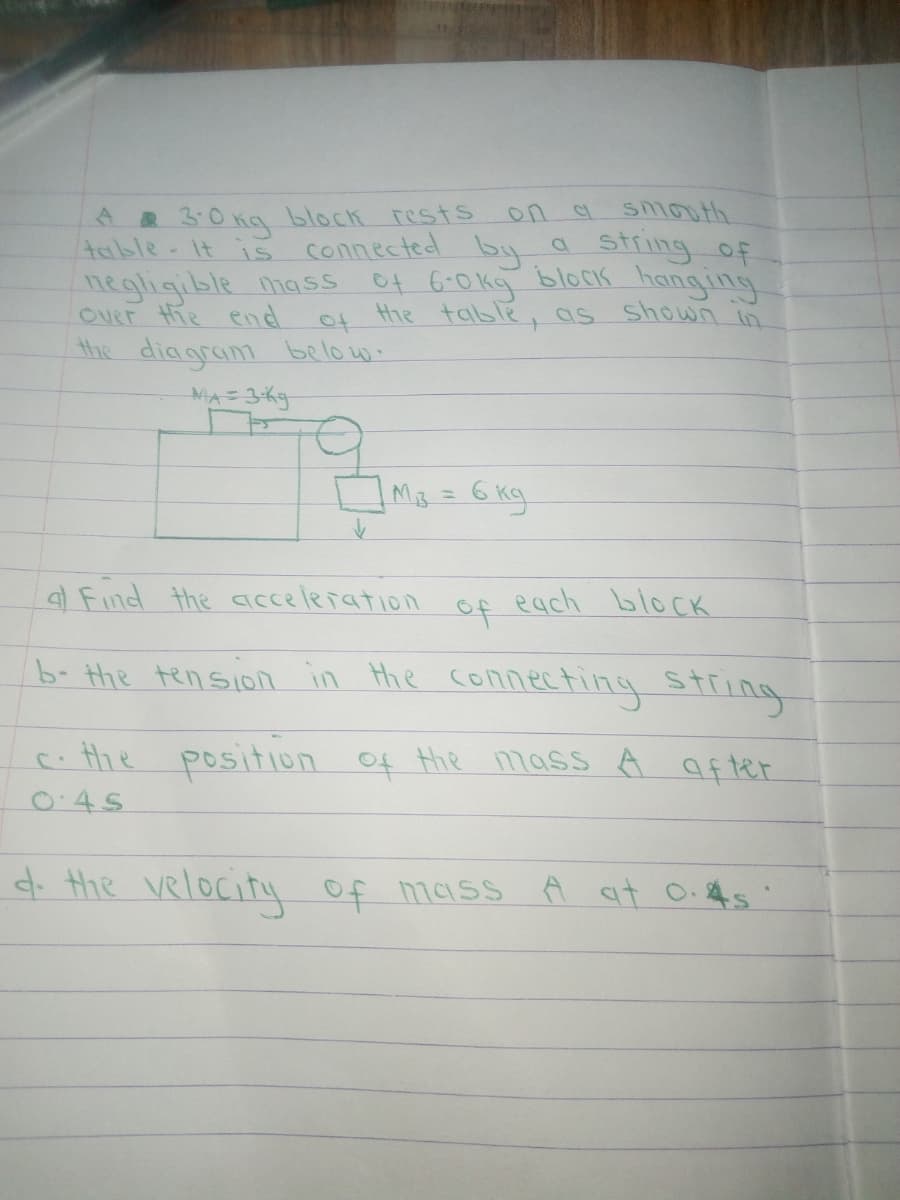 A 3.0 kg block rests on a smooth
table. It is connected by a string of
negligible mass of 6.0kg block hanging
over the end of the table, as shown in
the diagram below.
MA = 3kg
MB = 6 kg
a) Find the acceleration of each block
b- the tension in the connecting string
c. the position of the mass A after
0.4s
d. the velocity of mass A at 0.4s.